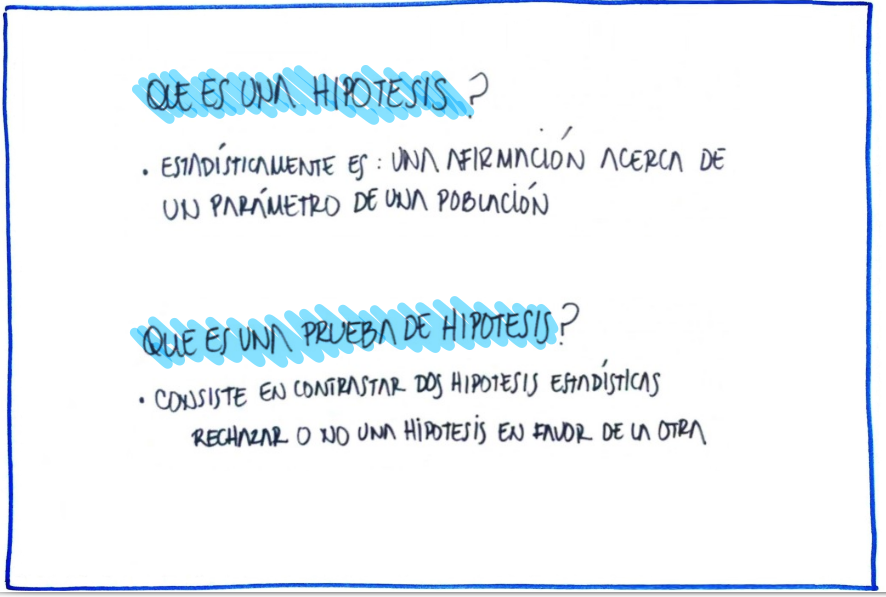 QUE ES UNA HIPOTESIS?
• ESTADÍSTICAMENTE ES: UNA AFIRMACIÓN ACERCA DE
UN PARÁMETRO DE UNA POBLACIÓN
QUE ES UNA PRUEBA DE HIPOTESIS?
• CONSISTE EN CONTRASTAR DOS HIPOTESIS ESTADÍSTICAS
RECHAZAR O NO UNA HIPOTESIS EN FAVOR DE LA OTRA